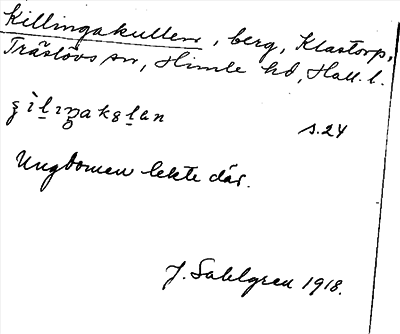 Killingakullen, berg, Klastorp,
Träslövs sn, Himle hd, Hall. l.
s. 24
Ungdomen lekte där.
J. Sahlgren 1918.